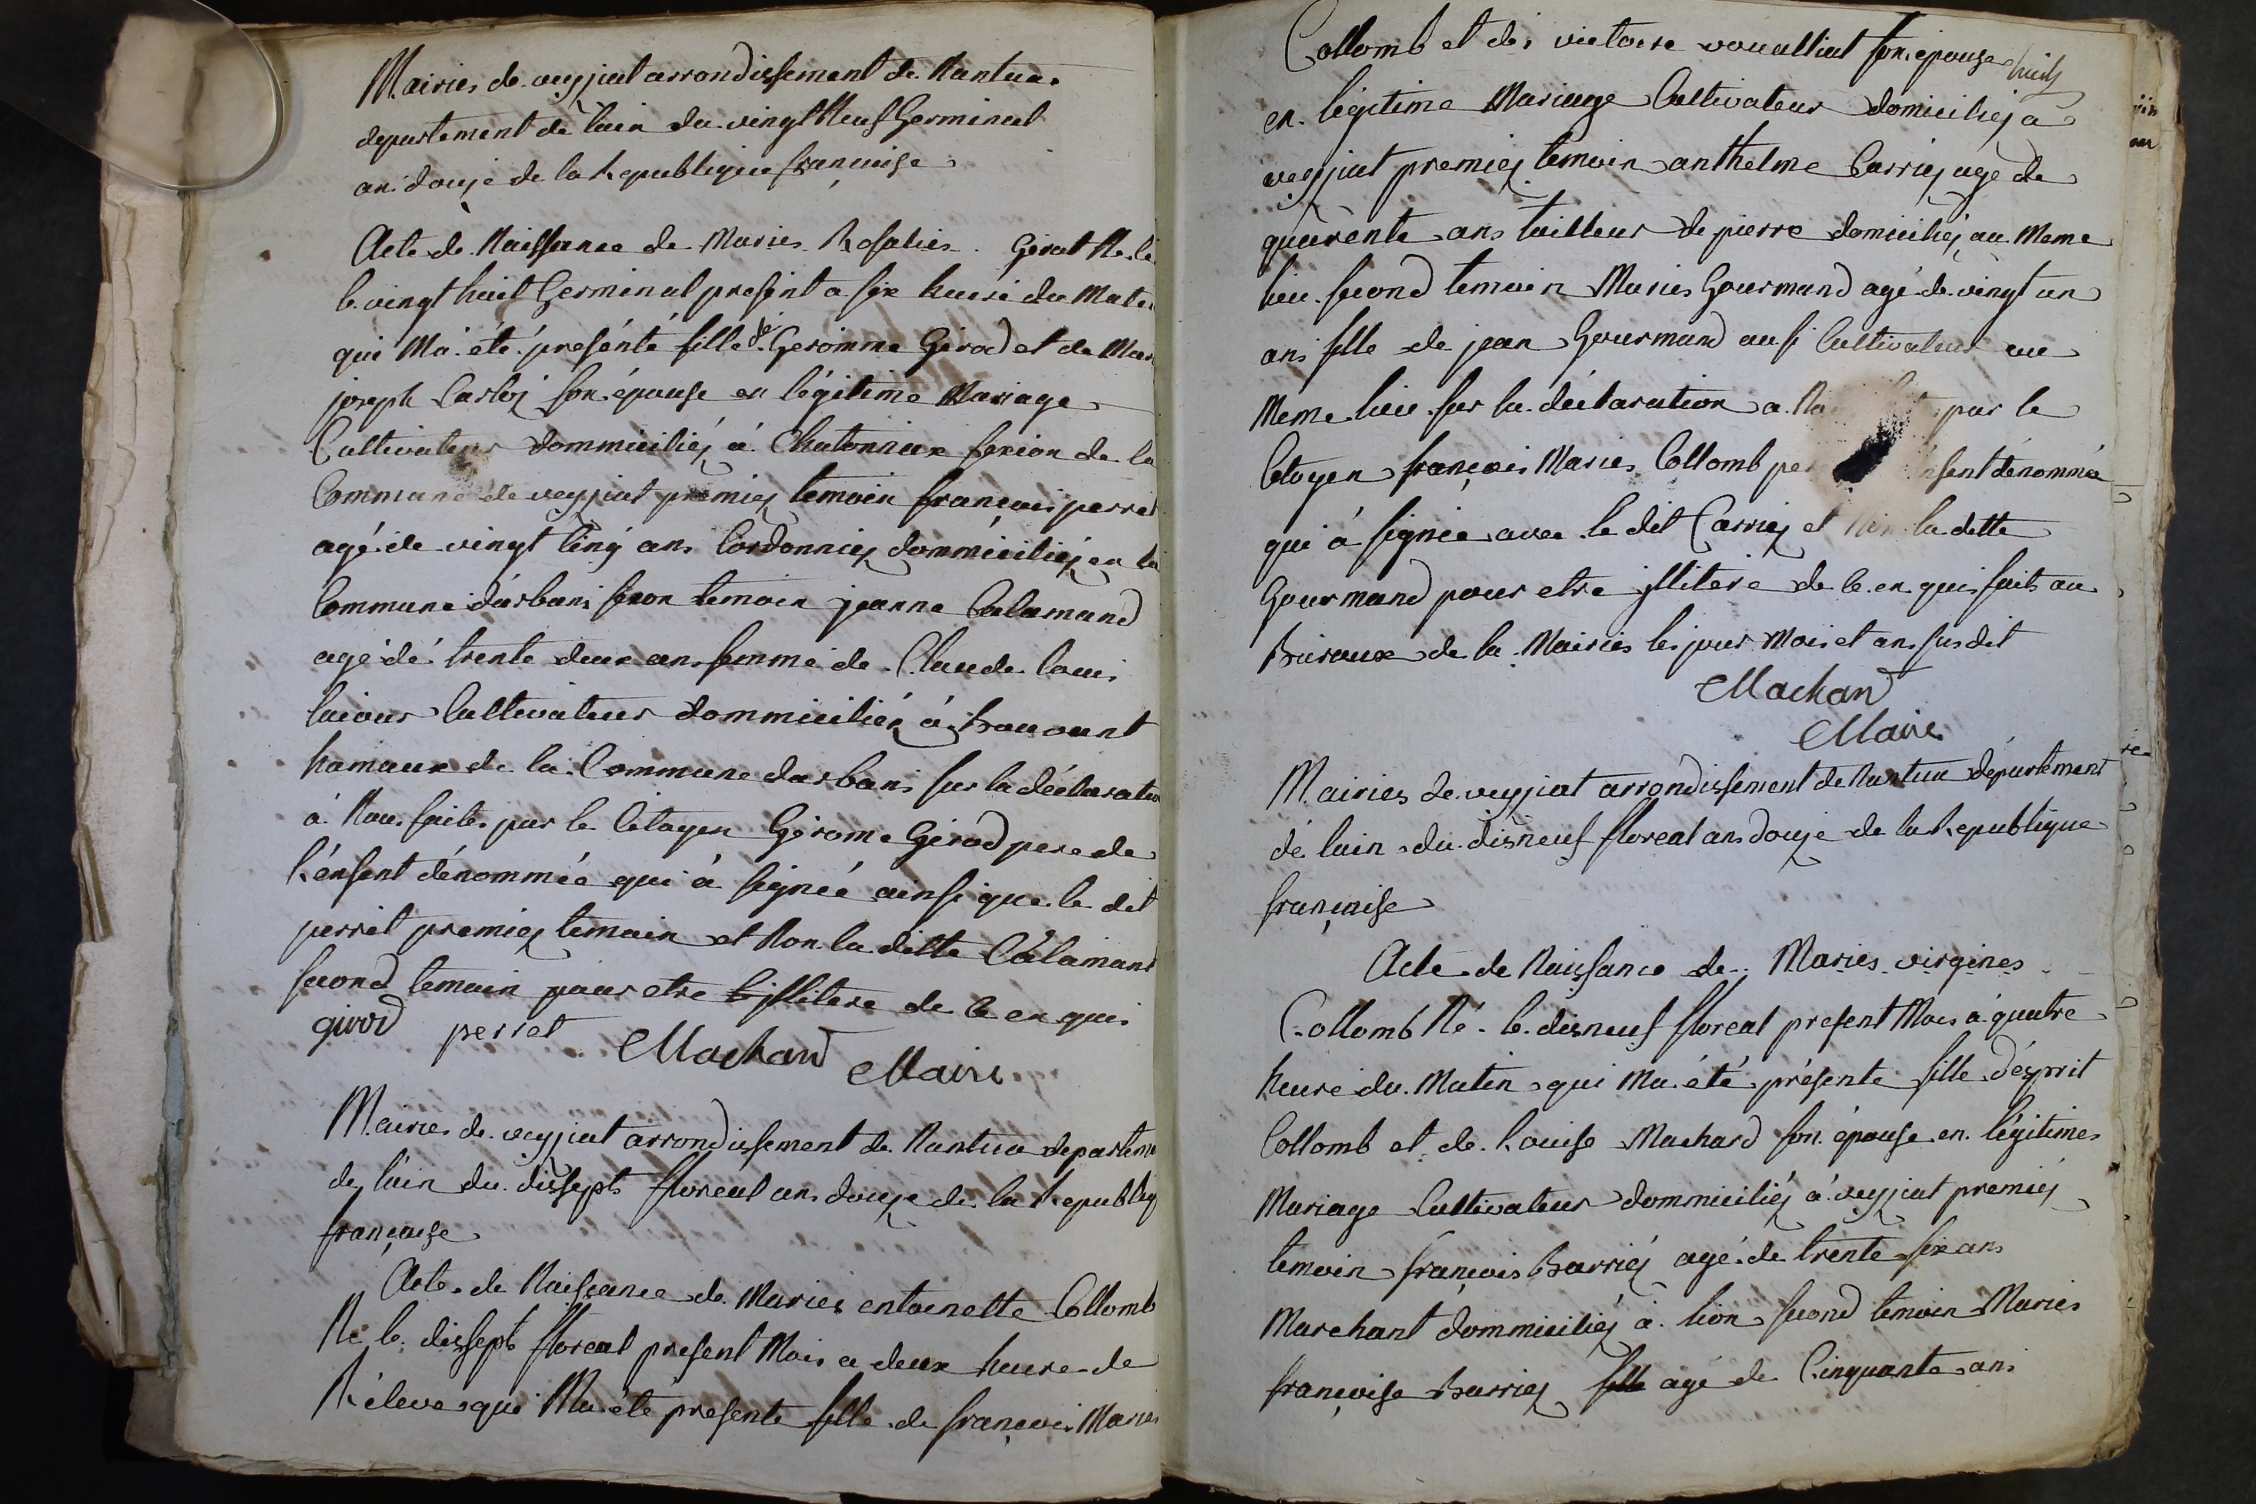 Mairies de veyziat arrondissement de Nantua
departement de lain du vingt Neuf Germinal
an douze de la Republique française
Acte de Naissance de Maries Rosalies Girod Ne le
le vingt huit Germinal present a six heure du Matin
qui Ma été présénté fille de Gerômme Girod et de Marie
joseph Carloz son épouse en légitime Mariage
Cultivateur dommiciliéz á Chatonnax sexion de la
Commune de veyziat premiez temoin françois perret
agé de vingt cinq ans Cordonniez dommiciliéz en la
Commune darbans secon temoin jeanne Calamand
agé dé trente deux ans femme de Claude loui
Cultivateur dommiciliéz á
hamaux de la Commune darbans sur la déclaration
á Nou faite par le Citoyen Gérome Girod pere de
L'énfent dénommée qui á signée ainsi que le dit
perret premiez temoin et Non la ditte Calamand
second temoin pour etre illitere de Ce en quis
girod perret Machard Maire
Mairies de veyziat arrondissement de Nantua departement
de lain du dissept floreal ans douze de la Republiq
française
Acte de Naissance de Maries entoinette Collomb
Né le dissept floreal present Mois a deux heure de
Réleve qui Ma été présente fille de françois Maries
Collomb et de victoire voualliat son épouse huit
en légitime Mariage Cultivateur domiciliéz a
veyziat premiez temoin anthelme Carriez agé de
quarente ans tailleur de pierre domiciliéz au Meme
lieu second temoin Maries Gourmand agé de vingt un
ans fille de jean Gourmand ausi Cultivateur au
Meme lieu sur la déclaration a par le
Citoyen françois Maries Collomb énfent dénommée
qui á signée avec le dit Carriez et Non la ditte
Gourmand pour etre illitere de Ce en quis fait au
Buraux de la Mairies les jour Mois et an susdit
Machard
Maire
Mairies de veyziat arrondissement de Nantua département
dé lain du disneuf floreal ans douze de la Republique
française
Acte de Naissance de Maries virgines
Collomb Né le disneuf floreal present Mois á quatre
heure du Matin qui Ma été présente fille d'ésprit
Collomb et de Louise Machard son épouse en légitimes
Mariage Cultivateur dommiciliéz á veyziat premiéz
temoin françois Barriéz agé de trente six ans
Marchant dommiciliéz á lion second temoin Maries
françoise Barriez fille agé de Cinquante ans